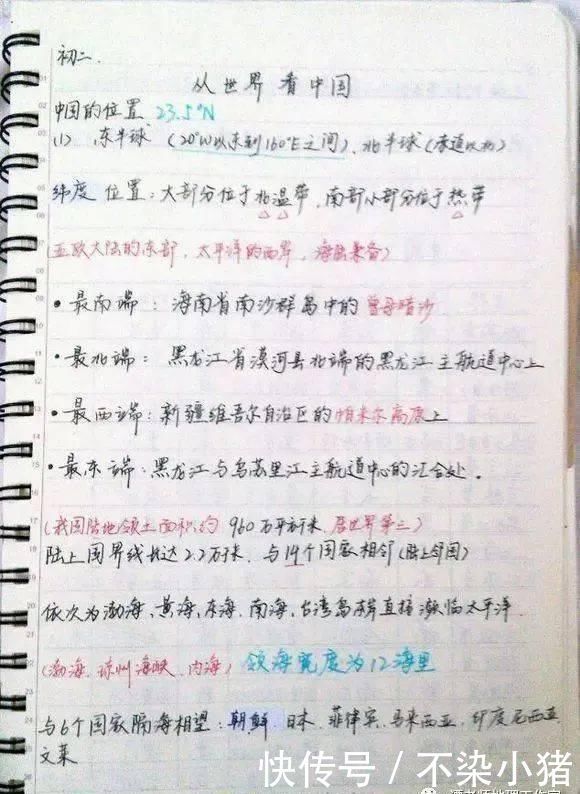 初二.
从世界看中国
中国的位置 23.5°N
(1) 东半球 (20°W以东到160°E之间)、北半球(赤道以北)
纬度 位置：大部分位于北温带,南部小部分位于热带
(亚欧大陆的东部,太平洋的西岸,海陆兼备)
• 最南端：海南省南沙群岛中的曾母暗沙
• 最北端：黑龙江省漠河县北端的黑龙江主航道中心上
• 最西端：新疆维吾尔自治区的帕米尔高原上
• 最东端：黑龙江与乌苏里江主航道中心的汇合处.
(我国陆地领土面积约 960万平方千米,居世界第三)
陆上国界线长达2.2万千米,与14个国家相邻(陆上邻国)
依次为渤海、黄海、东海、南海,台湾岛东岸直接濒临太平洋.
(渤海、琼州海峡、内海) 领海宽度为12海里
与6个国家隔海相望：朝鲜 日本、菲律宾、马来西亚、印度尼西亚
文莱
快传号 / 不染小猪